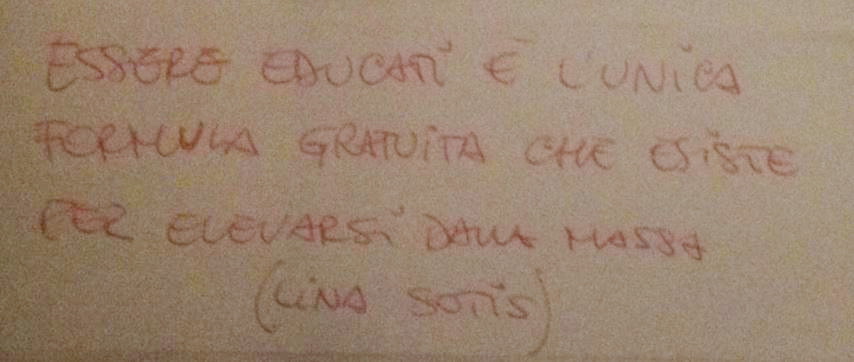 ESSERE EDUCATI È L'UNICA
FORMULA GRATUITA CHE ESISTE
PER ELEVARSI DALLA MASSA
(LINA SOTIS)